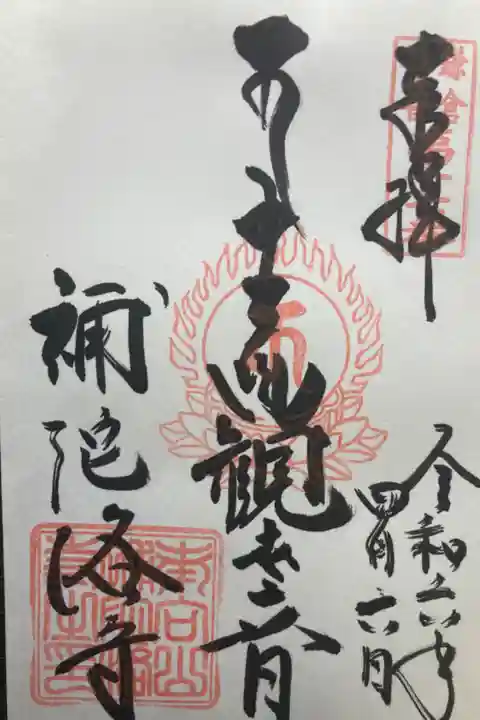 奉拝
鎌倉
令和六年
四月六日
十一面観世音
補陀洛寺
南向山